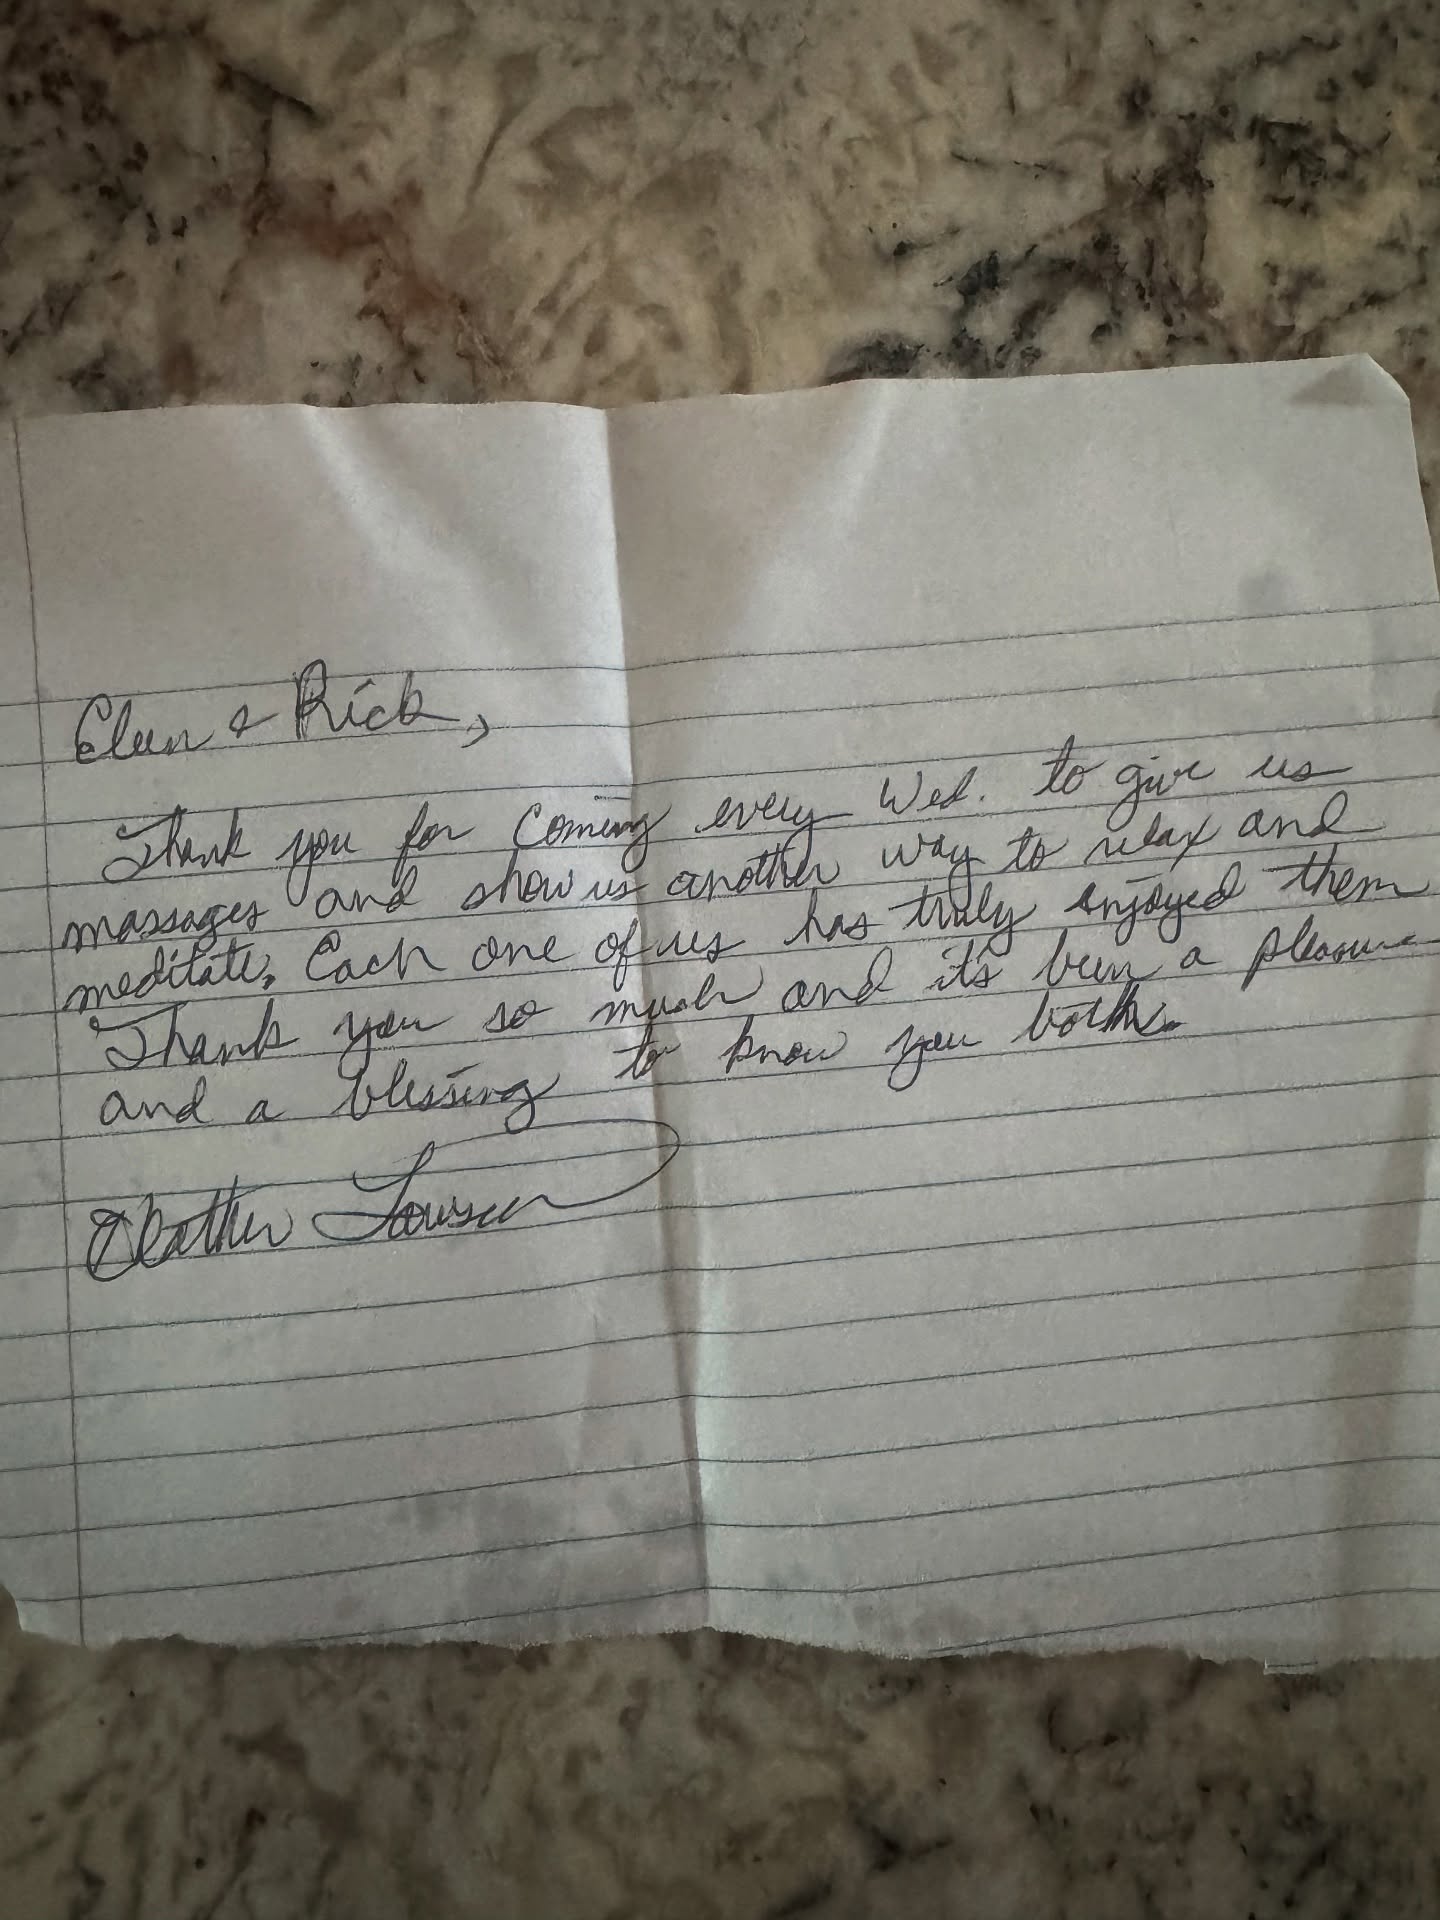 Eleen & Rick,
Thank you for coming every Wed. to give us
massages and show us another way to relax and
meditate. Each one of us has truly enjoyed them
Thank you so much and it's been a pleasure
and a blessing to know you both.
Heather Lawson